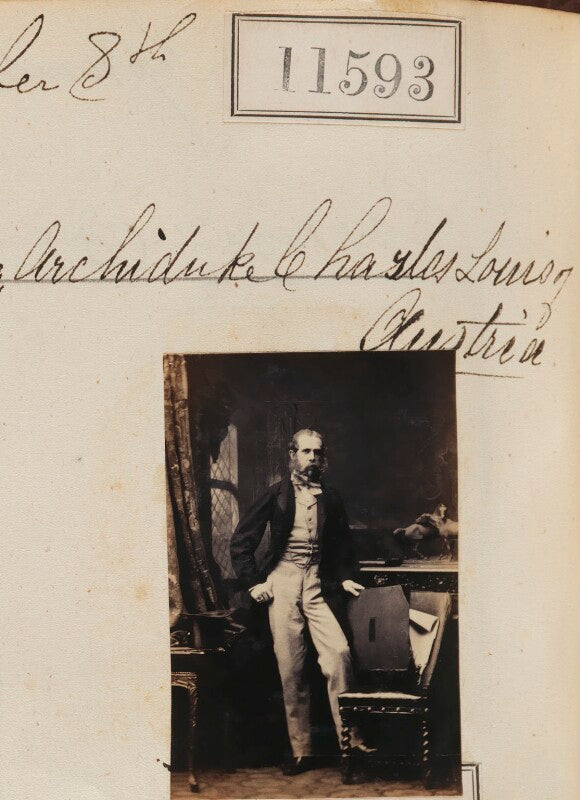 8th
11593
Archiduke Charles Louis of
Austria